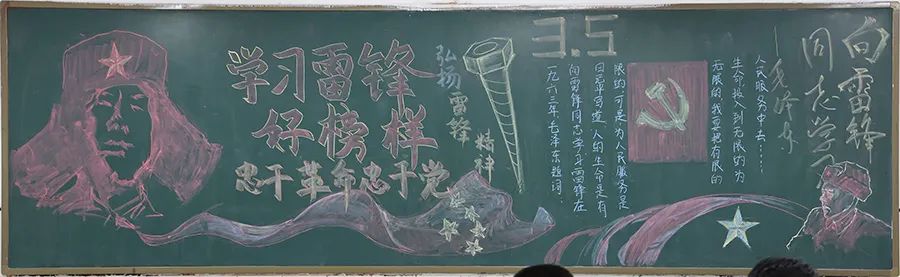 学习雷锋
好榜样
忠于革命忠于党
弘扬
雷锋
精神
3.5
一九六三年毛泽东题词:
向雷锋同志学习雷锋在
日记中写道 人的生命是有
限的 可是为人民服务是
无限的 我要把有限的
生命投入到无限的为
人民服务中去……
向雷锋
同志学习
——毛泽东